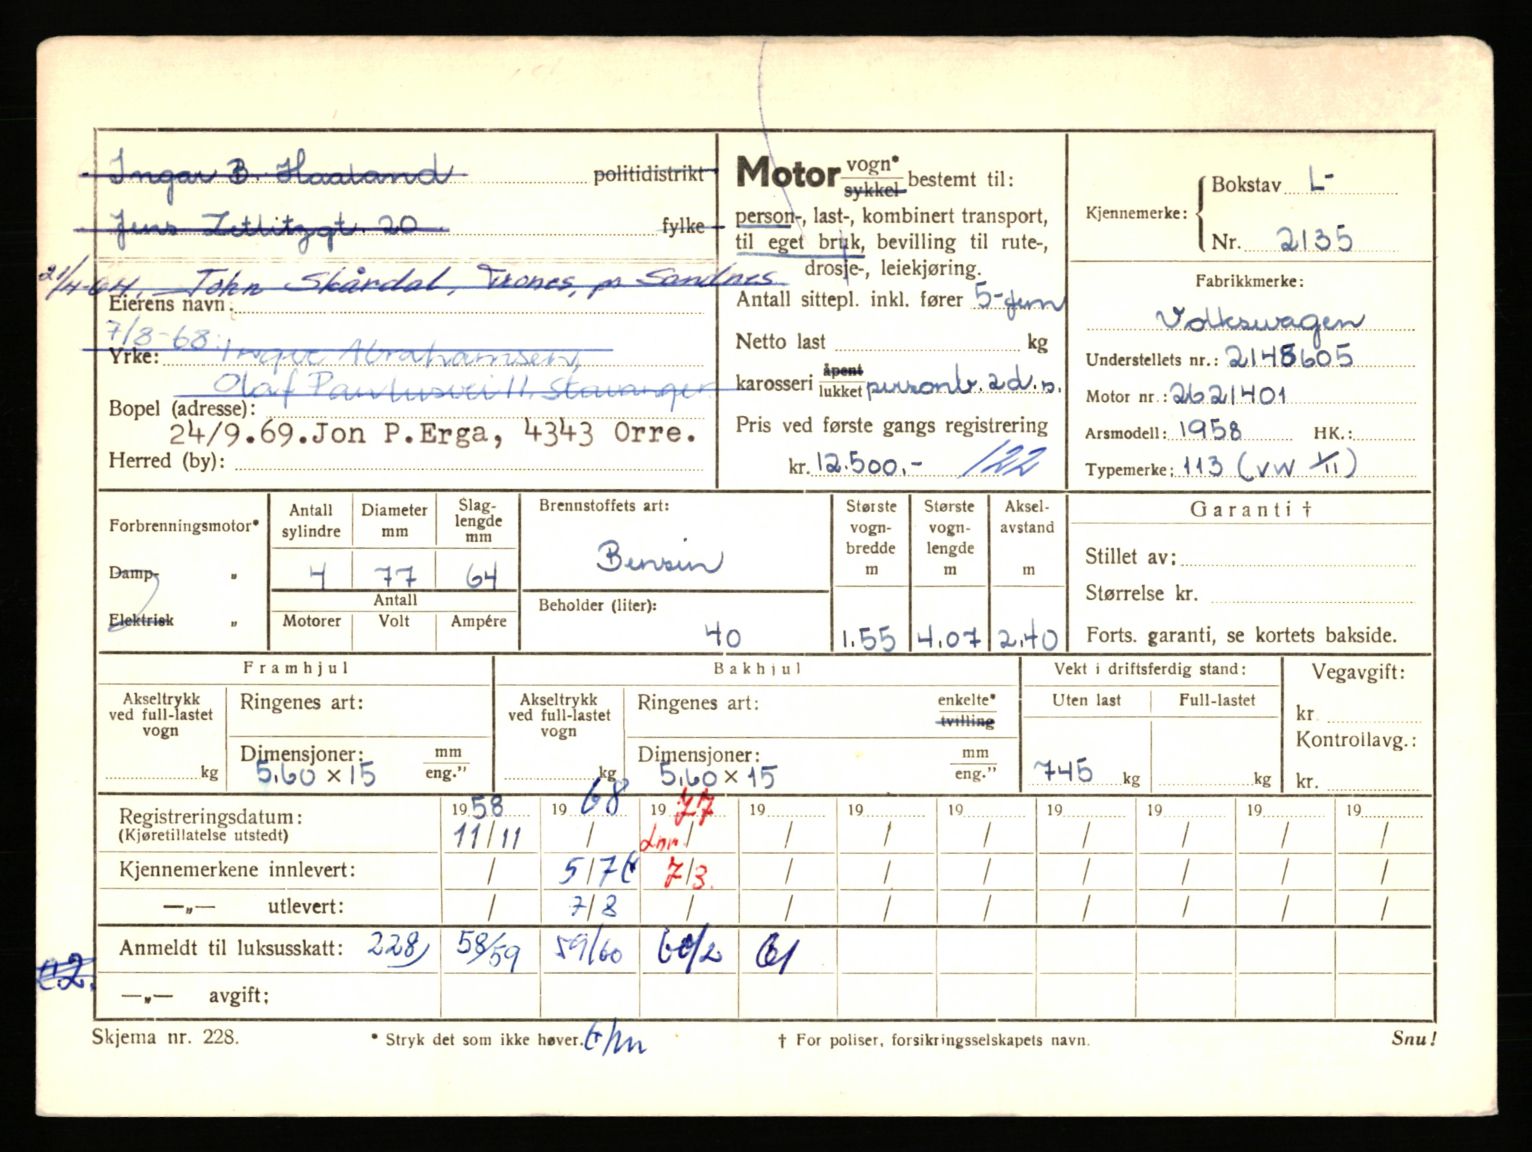 Ingar B. Haaland politidistrikt
Jens Zetlitzgt. 20 fylke
21/4-64. John Skårdal, Trones, pr Sandnes
Eierens navn:
7/8-68. Ingve Abrahamsen,
Yrke:
Olaf Paulusvei 11, Stavanger
Bopel (adresse):
24/9.69. Jon P.Erga, 4343 Orre.
Herred (by):
Motor vogn* sykkel bestemt til:
person-, last-, kombinert transport,
til eget bruk, bevilling til rute-,
drosje-, leiekjøring.
Antall sittepl. inkl. fører 5-fem
Netto last kg
karosseri åpent lukket personb. 2d. s.
Pris ved første gangs registrering
kr. 12.500,- 122
Kjennemerke: Bokstav L-
Nr. 2135
Fabrikkmerke:
Volkswagen
Understellets nr.: 2148605
Motor nr.: 2621401
Arsmodell: 1958 HK.:
Typemerke: 113 (VW II)
Forbrenningsmotor*
Damp- „
Elektrisk „
Antall sylindre Diameter mm Slag-lengde mm
4 77 64
Antall
Motorer Volt Ampére
Brennstoffets art:
Bensin
Beholder (liter):
40
Største vogn-bredde m Største vogn-lengde m Aksel-avstand m
1.55 4.07 2.40
Garanti †
Stillet av:
Størrelse kr.
Forts. garanti, se kortets bakside.
Framhjul Bakhjul Vekt i driftsferdig stand: Vegavgift:
Akseltrykk ved full-lastet vogn kg
Ringenes art:
Dimensjoner: mm eng.”
5.60 x 15
Akseltrykk ved full-lastet vogn kg
Ringenes art: enkelte* tvilling
Dimensjoner: mm eng.”
5.60 x 15
Uten last Full-lastet
745 kg kg
kr.
Kontrollavg.:
kr.
Registreringsdatum: 1958 1968 1977 19 19 19 19 19 19 19
(Kjøretillatelse utstedt) 11/11 / / / / / / / / /
Kjennemerkene innlevert: / 5/7 7/3. / / / / / / /
—„— utlevert: / 7/8 / / / / / / / /
Anmeldt til luksusskatt: 228) 58/59 59/60 60/2 61
—„— avgift;
Skjema nr. 228. * Stryk det som ikke høver. † For poliser, forsikringsselskapets navn. Snu!